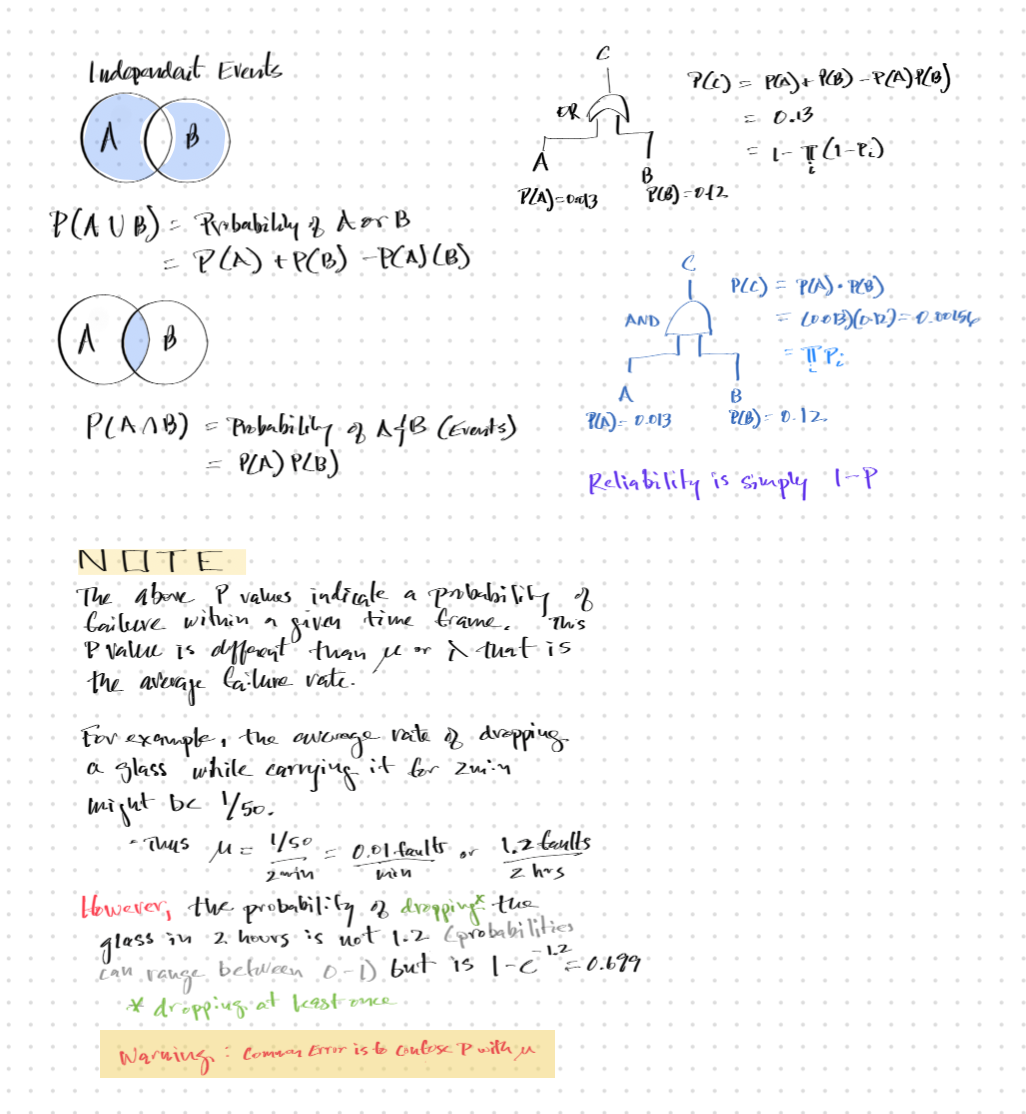 Independent Events
A B
P(A ∪ B) = Probability of A or B
= P(A) + P(B) - P(A)(B)
A B
P(A ∩ B) = Probability of A & B (Events)
= P(A) P(B)
C
OR
A
B
P(A)=0.013 P(B)=0.12
P(C) = P(A) + P(B) - P(A)P(B)
= 0.13
= 1 - π (1-Pi)
i
C
AND
A B
P(A)=0.013 P(B)=0.12
P(C) = P(A) · P(B)
= (0.013)(0.12) = 0.00156
= π Pi
i
Reliability is simply 1-P
NOTE
The above P values indicate a probability of
failure within a given time frame. This
P value is different than μ or λ that is
the average failure rate.
For example, the average rate of dropping
a glass while carrying it for 2min
might be 1/50.
- Thus μ = 1/50 / 2min = 0.01 faults / min or 1.2 faults / 2 hrs
However, the probability of dropping* the
glass in 2 hours is not 1.2 (probabilities
can range between 0-1) but is 1-e^-1.2 = 0.699
* dropping at least once
Warning: Common Error is to confuse P with μ